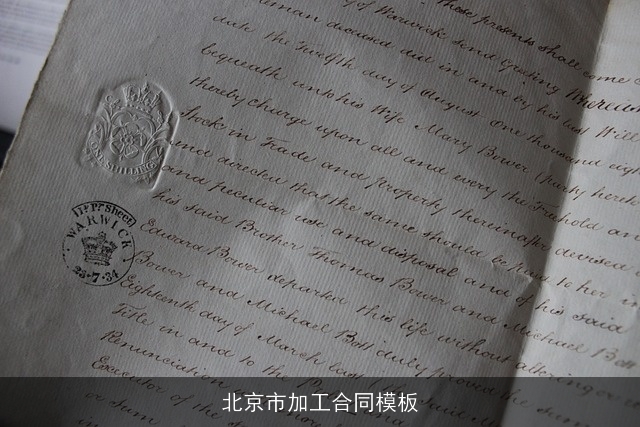 of Warwick send Greeting Whereas
deceased did in and by his last Will
date the Twelfth day of August One thousand eigh
bequeath unto his Wife Mary Bower (party heret
thereby charge upon all and every the Freehold an
Stock in Trade and property thereinafter devised
and directed that the same should be paid to her
and peculiar use and disposal and of his said
his said Brother Thomas Bower and Michael Bott
Edward Bower departed this life without altering or
Bower and Michael Bott duly proved the same
Eighteenth day of March last
Title in and to the
Renunciation
Executor of the
or sum
ONE SHILLING
Sheet
WARWICK
23·7·34
北京市加工合同模板